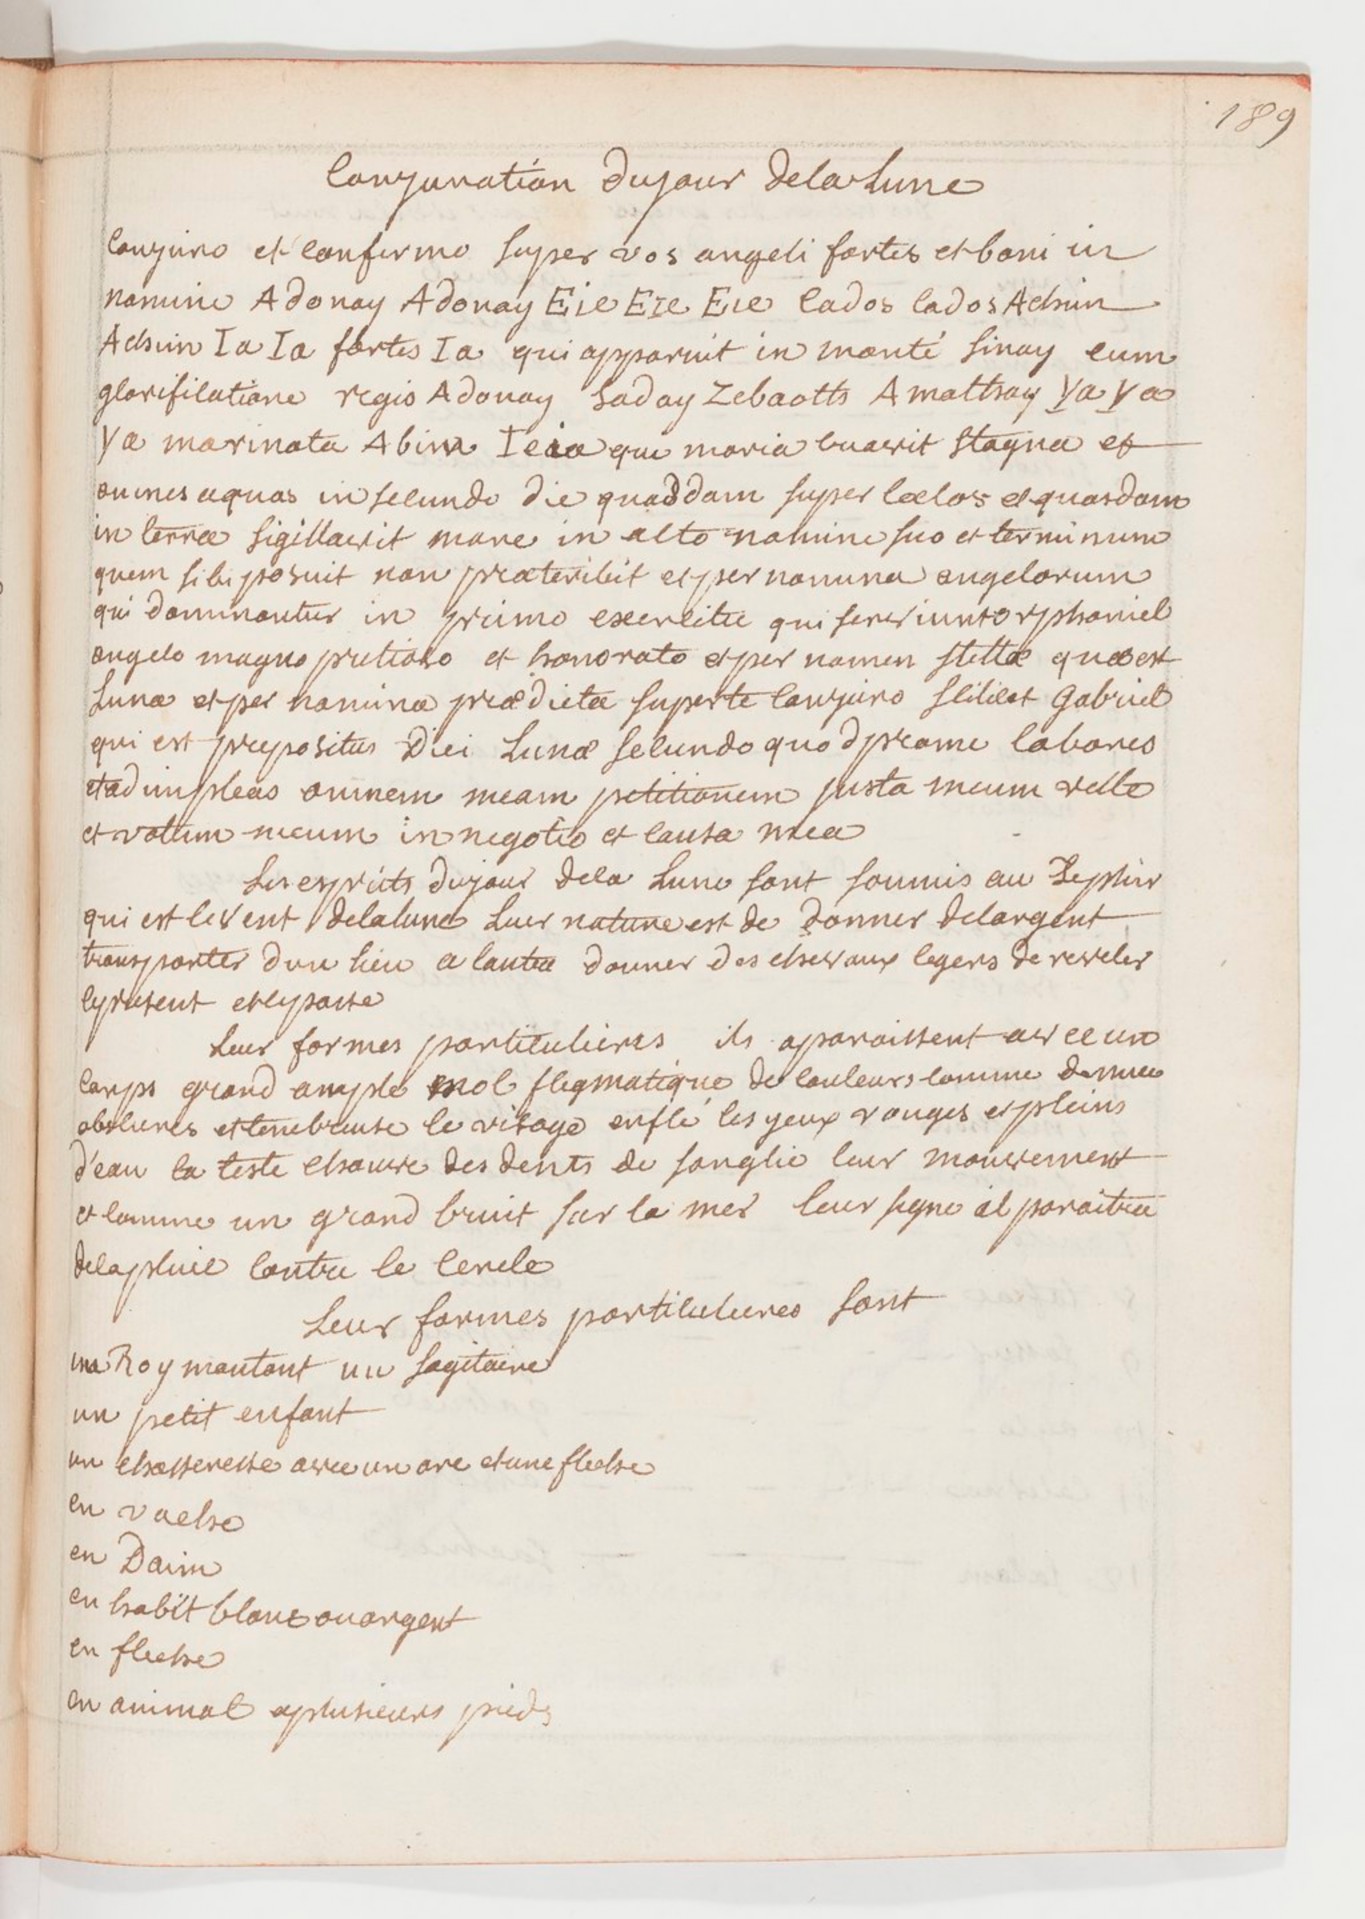 189
Conjuration du jour de la Lune
Conjuro et confirmo super vos angeli fortes et boni in
nomine Adonay Adonay Eie Eie Eie Cados Cados Achim
Achim Ia Ia fortis Ia qui apparuit in monté sinay cum
glorificatione regis Adonay Saday Zebaoth Amathay ya ya
ya marinata Abim Ieia qui maria creavit stagna et
omnes aquas in secundo die quasdam super coelos et quasdam
in terra sigillavit mare in alto nomine suo et terminum
quem sibi posuit non praeteribit et per nomina angelorum
qui dominantur in primo exercitu qui serviunt orphaniel
angelo magno pretioso et honorato et per nomen stellae quae est
Luna et per nomina praedicta super te conjuro scilicet Gabriel
qui est prepositus Diei Lunae secundo quod pro me labores
et adimpleas omnem meam petitionem justa meum velle
et votum meum in negotio et causa mea
Les esprits du jour de la Lune sont soumis au Zephir
qui est le vent de la lune Leur nature est de donner de largent
transporter dun lieu a lautre donner des chevaux legers de reveler
le present et le passe
Leur formes particulieres ils aparoissent avec un
corps grand ample mol flegmatique de couleurs comme de nuee
obscures et tenebreuse le visage enflé les yeux rouges et pleins
d'eau la teste chauve des dents de sanglie leur mouvement
et comme un grand bruit sur la mer leur signe il paroitra
de la pluie contre le cercle
Leur formes particulieres sont
un Roy montant un sagitaire
un petit enfant
un chasseresse avec un arc et une fleche
en vache
en Daim
en habit blanc ou argent
en fleche
en animal a plusieurs pieds